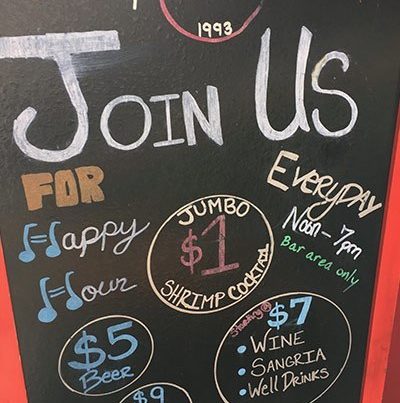 1993
JOIN US
FOR
Happy
Hour
EVERYDAY
Noon - 7pm
Bar area only
JUMBO
$1
SHRIMP COCKTAIL
$5
Beer
$7
• WINE
• SANGRIA
• Well DRINKS
$9